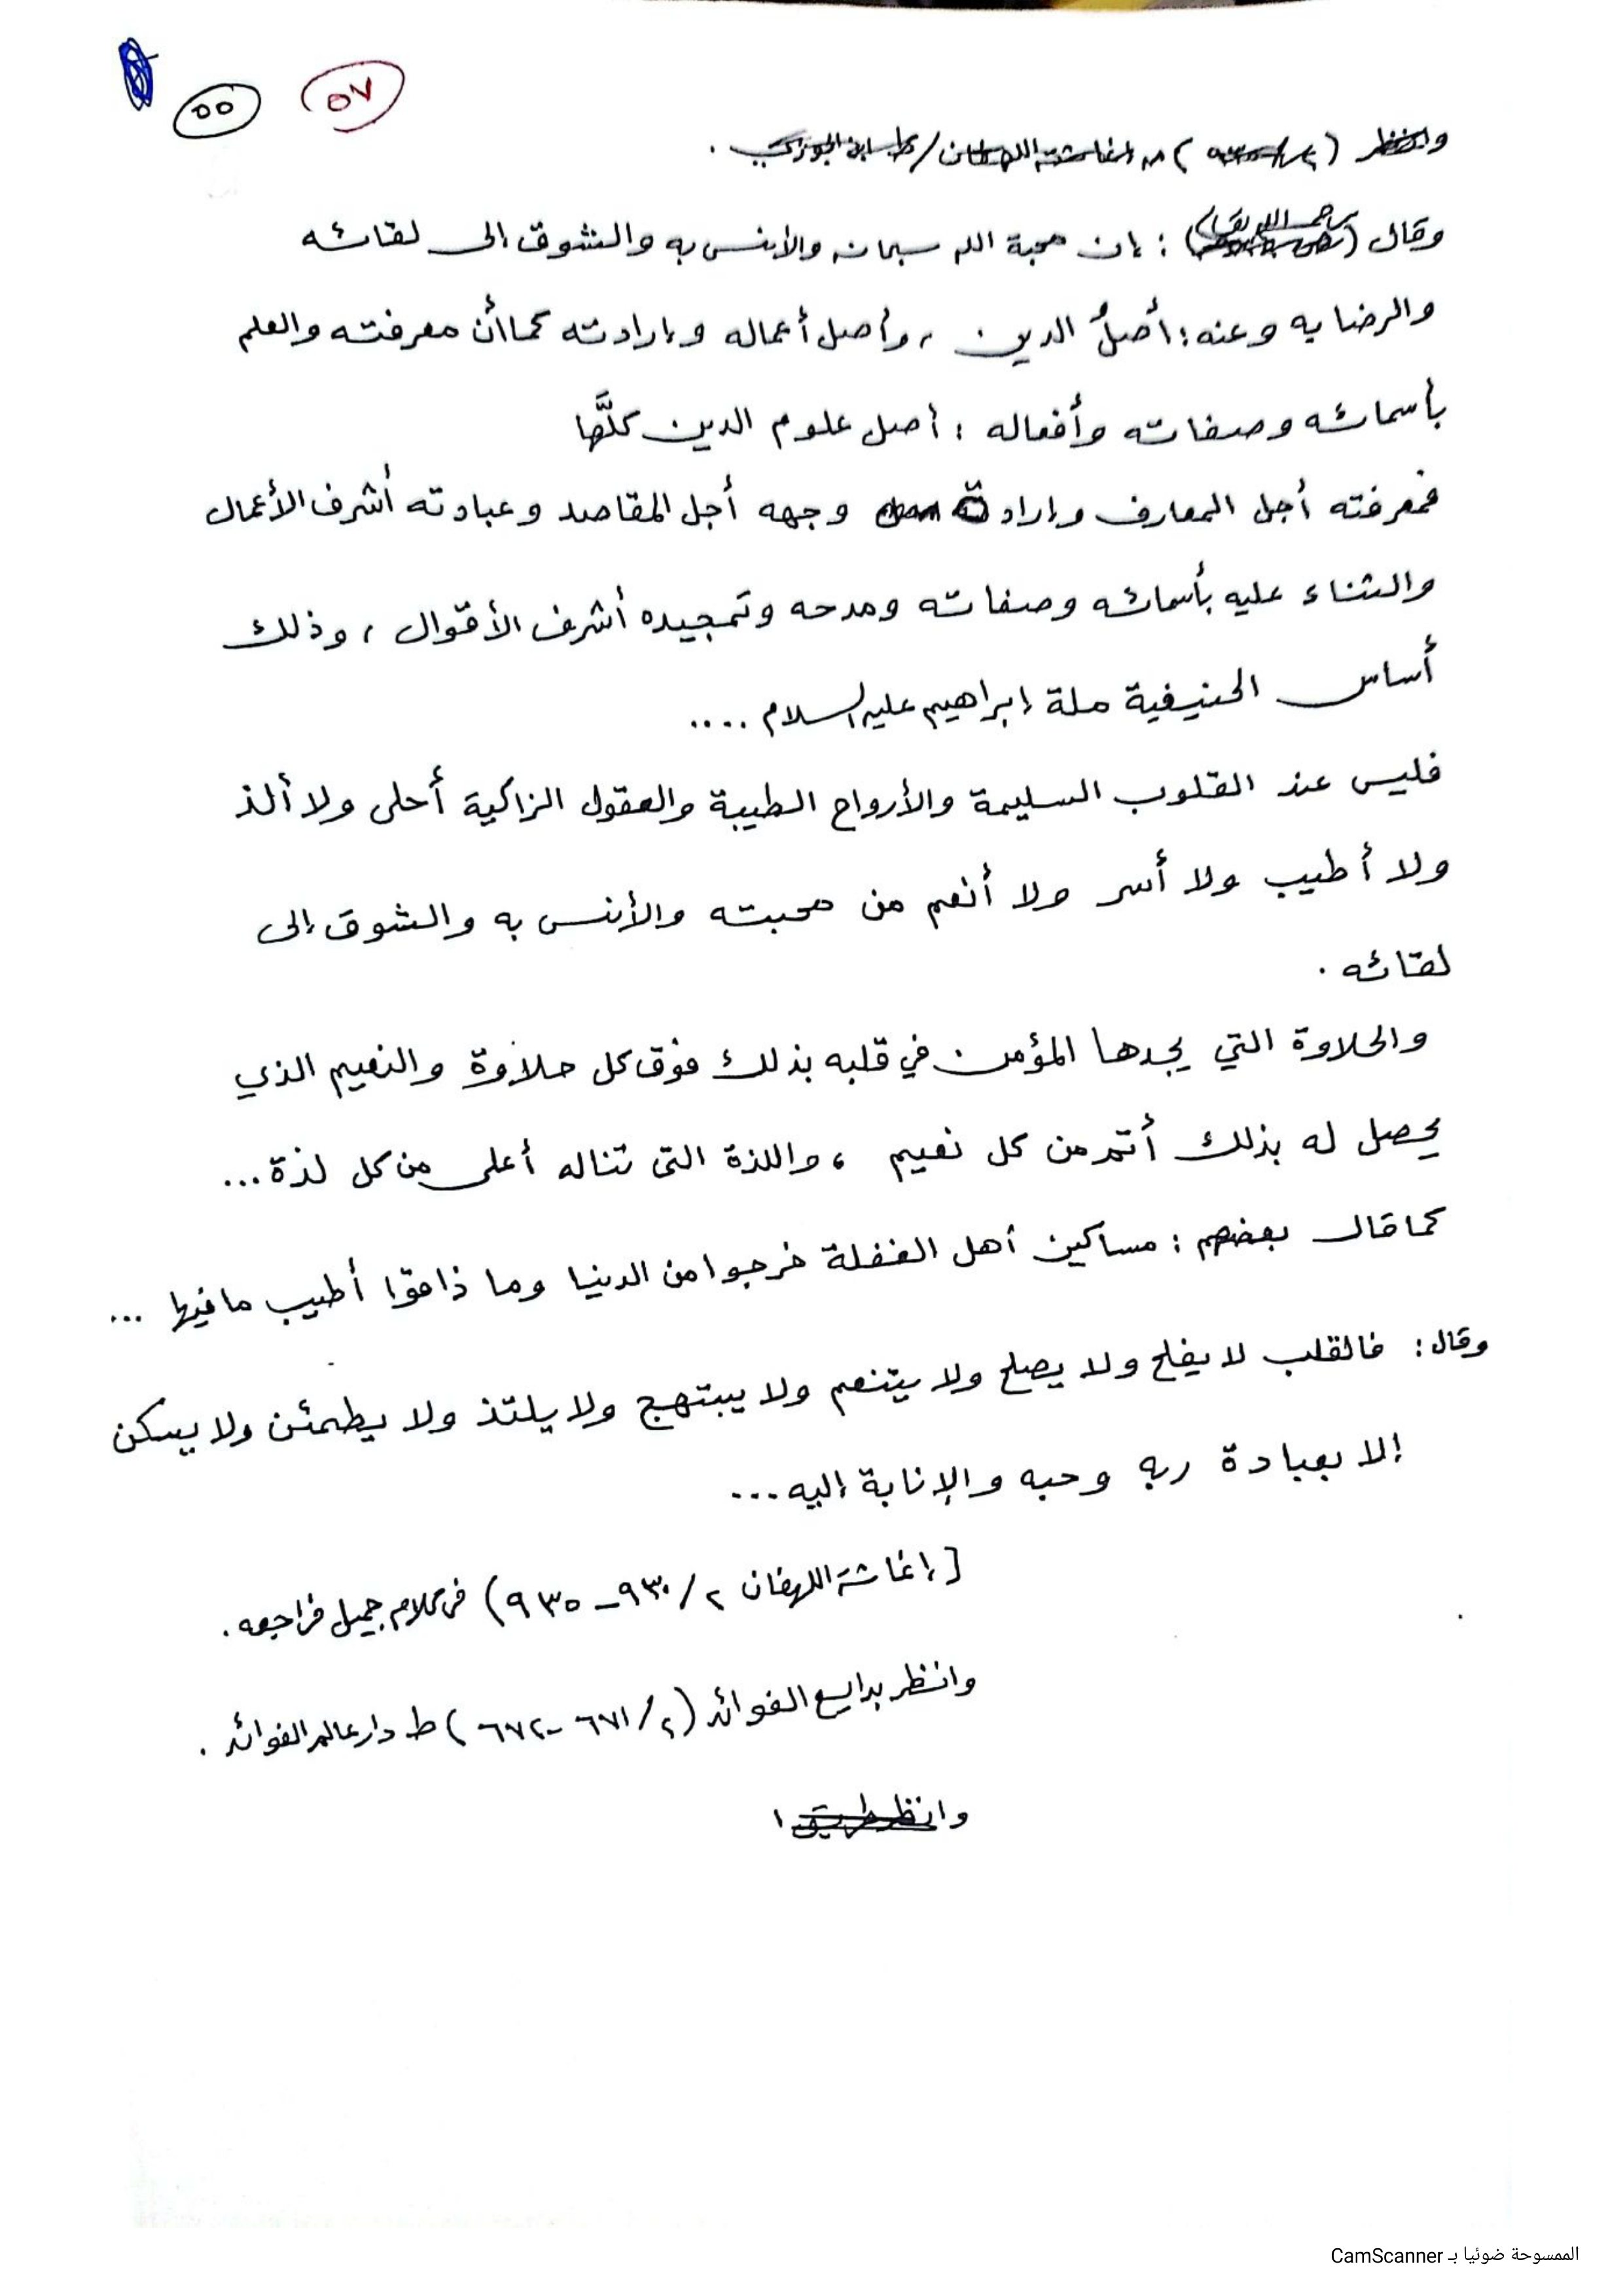 ٥٧
٥٥
وقال (رحمه الله تعالى) : إن محبة الله سبحانه والأنس به والشوق إلى لقائه
والرضا به وعنه : أصلُ الدين ، وأصل أعماله وإرادته كما أن معرفته والعلم
بأسمائه وصفاته وأفعاله : أصل علوم الدين كلَّها
فمعرفته أجل المعارف وإرادة وجهه أجل المقاصد وعبادته أشرف الأعمال
والثناء عليه بأسمائه وصفاته ومدحه وتمجيده أشرف الأقوال ، وذلك
أساس الحنيفية ملة إبراهيم عليه السلام ....
فليس عند القلوب السليمة والأرواح الطيبة والعقول الزاكية أحلى ولا ألذ
ولا أطيب ولا أسر ولا أنعم من محبته والأنس به والشوق إلى
لقائه .
والحلاوة التي يجدها المؤمن في قلبه بذلك فوق كل حلاوة والنعيم الذي
يحصل له بذلك أتم من كل نعيم ، واللذة التى تناله أعلى من كل لذة ...
كما قال بعضهم : مساكين أهل الغفلة خرجوا من الدنيا وما ذاقوا أطيب ما فيها ...
وقال : فالقلب لا يفلح ولا يصلح ولا يتنعم ولا يبتهج ولا يلتذ ولا يطمئن ولا يسكن
إلا بعبادة ربه وحبه والإنابة إليه ...
[ إغاثة اللهفان ٢ / ٩٣٠ - ٩٣٥ ) في كلام جميل فراجعه .
وانظر بدايع الفوائد ( ٢ / ٦٧١ - ٦٧٢ ) ط دار عالم الفوائد .
الممسوحة ضوئيا بـ CamScanner